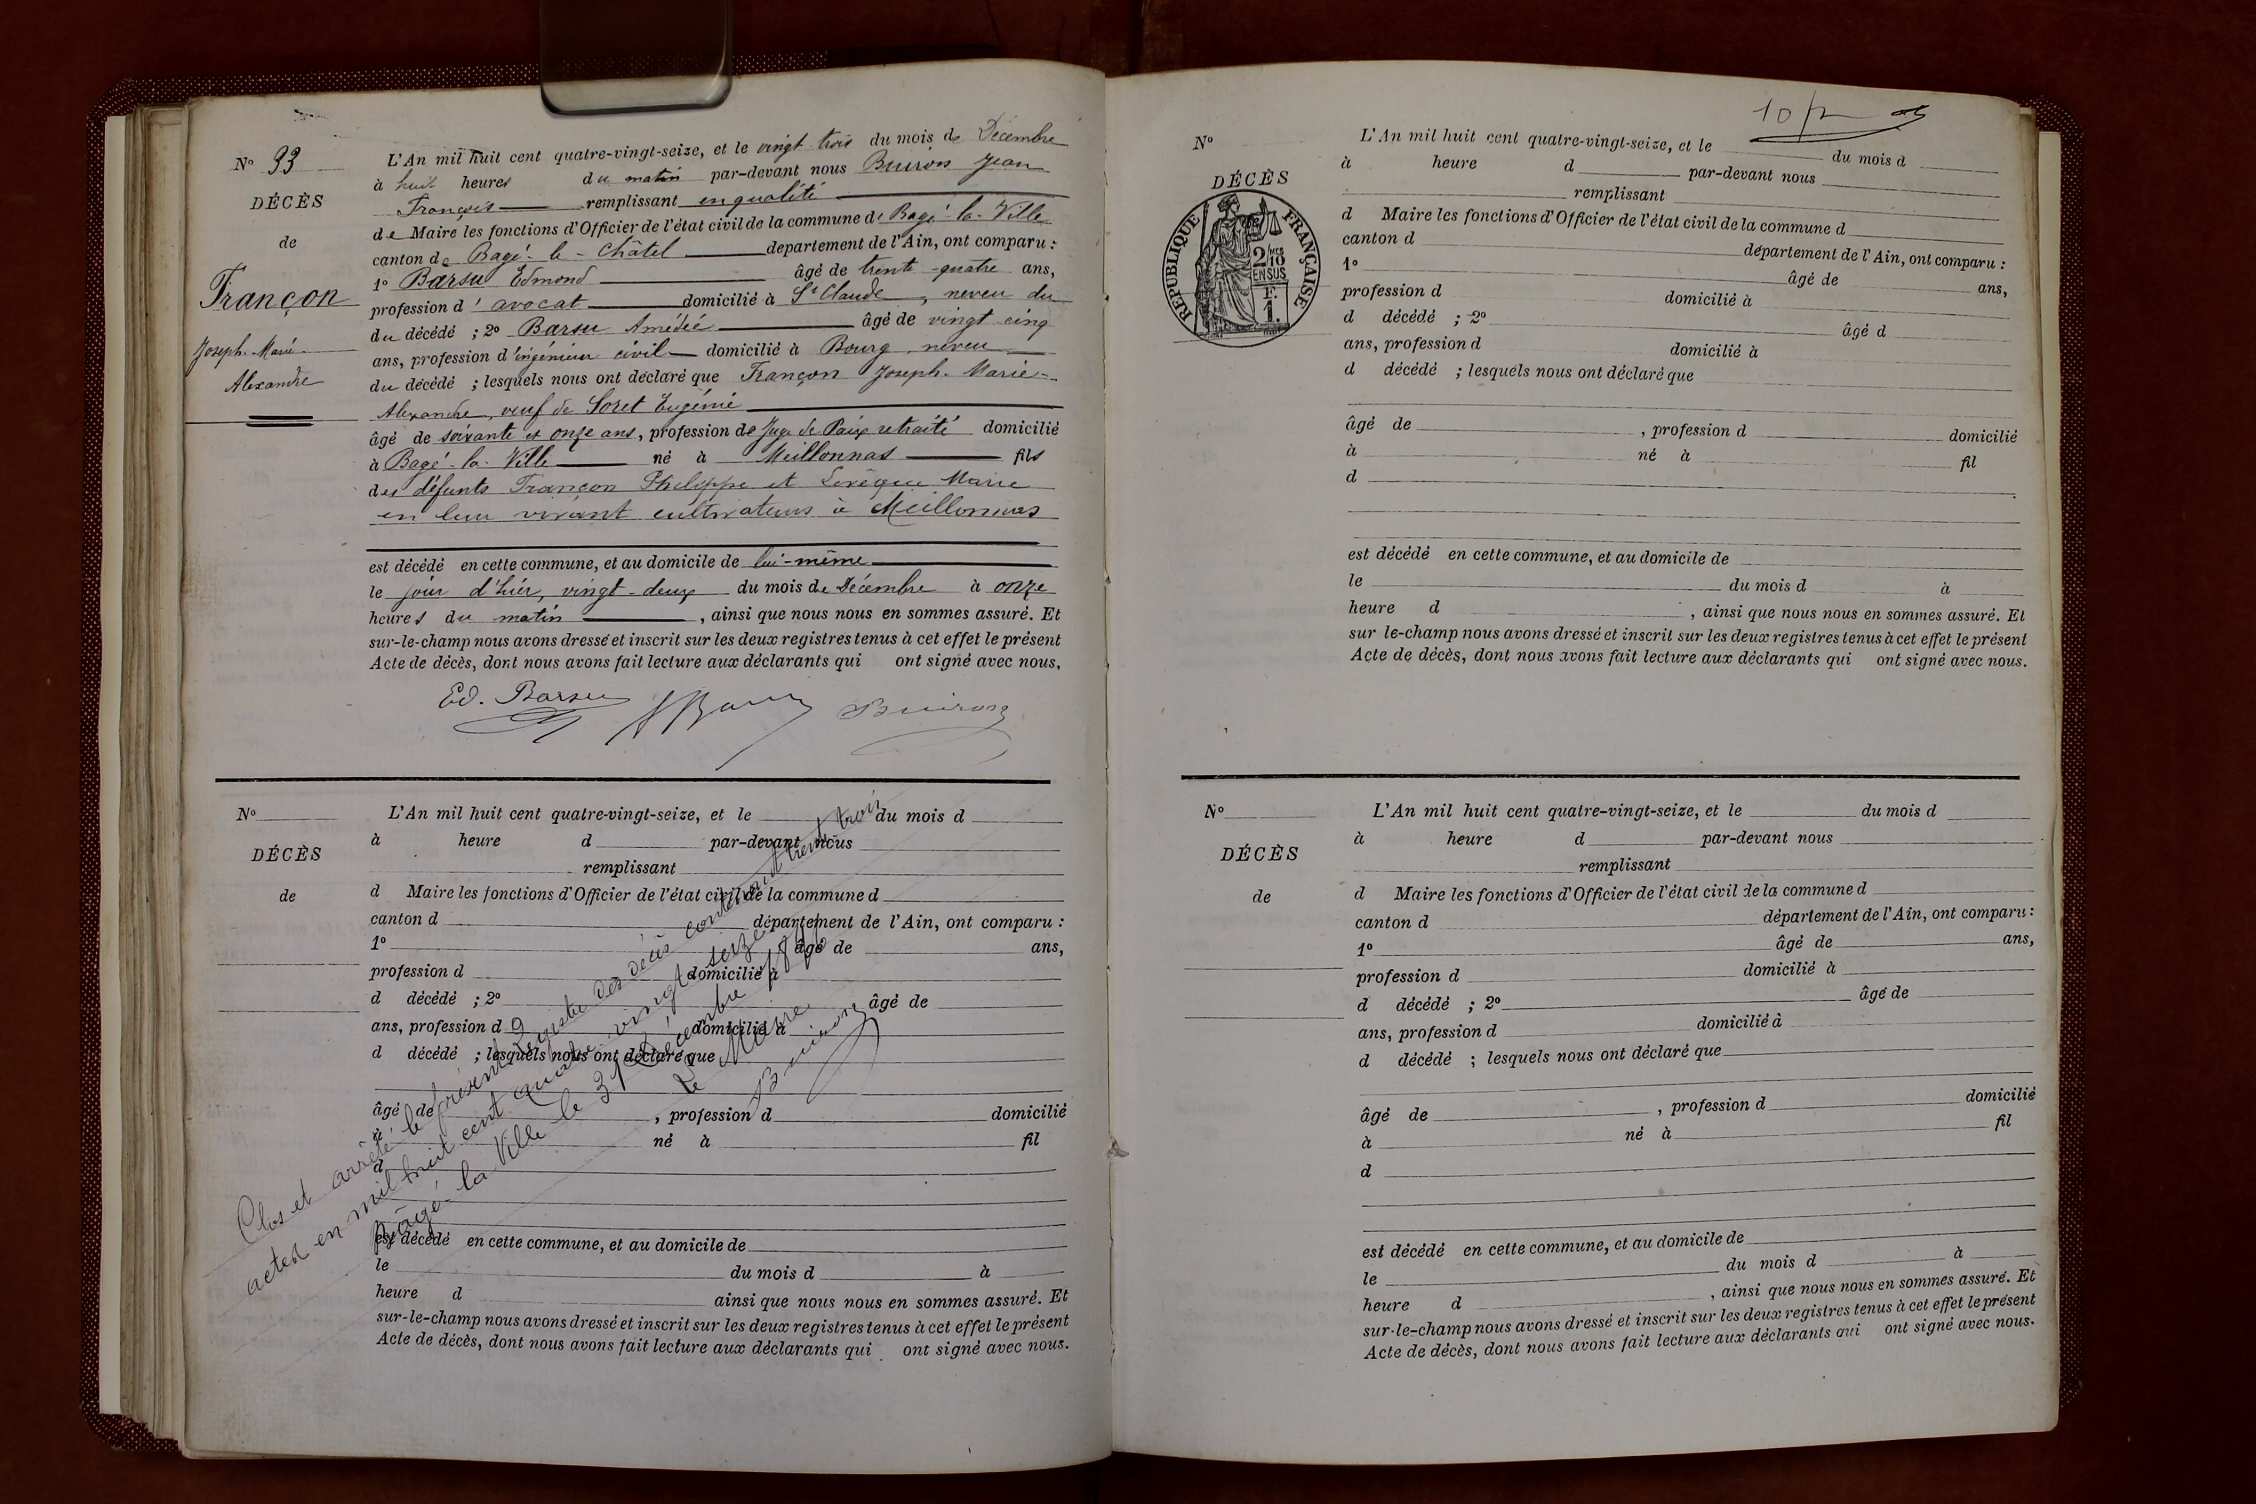 N° 33
DÉCÈS
de
Françon
Joseph-Marie-
Alexandre
L'An mil huit cent quatre-vingt-seize, et le vingt trois du mois de Décembre
à huit heures du matin par-devant nous Buiron Jean
François remplissant en qualité
de Maire les fonctions d'Officier de l'état civil de la commune de Bagé-la-Ville
canton de Bagé-le-Châtel département de l'Ain, ont comparu :
1° Barsu Edmond âgé de trente-quatre ans,
profession d'avocat domicilié à St Claude, neveu du
du décédé ; 2° Barsu Amédée âgé de vingt cinq
ans, profession d'ingénieur civil domicilié à Bourg, neveu
du décédé ; lesquels nous ont déclaré que Françon Joseph-Marie-
Alexandre, veuf de Soret Eugénie
âgé de soixante et onze ans, profession de Juge de Paix retraité domicilié
à Bagé-la-Ville né à Meillonnas fils
des défunts Françon Philippe et Levêque Marie
en leur vivant cultivateurs à Meillonnas
est décédé en cette commune, et au domicile de lui-même
le jour d'hier, vingt-deux du mois de Décembre à onze
heures du matin, ainsi que nous nous en sommes assuré. Et
sur-le-champ nous avons dressé et inscrit sur les deux registres tenus à cet effet le présent
Acte de décès, dont nous avons fait lecture aux déclarants qui ont signé avec nous.
Ed. Barsu Buiron
N°
DÉCÈS
de
L'An mil huit cent quatre-vingt-seize, et le du mois d
à heure d par-devant nous
remplissant
d Maire les fonctions d'Officier de l'état civil de la commune d
canton d département de l'Ain, ont comparu :
1° âgé de ans,
profession d domicilié à
d décédé ; 2° âgé de
ans, profession d domicilié à
d décédé ; lesquels nous ont déclaré que
âgé de , profession d domicilié
à né à fil
d
est décédé en cette commune, et au domicile de
le du mois d à
heure d ainsi que nous nous en sommes assuré. Et
sur-le-champ nous avons dressé et inscrit sur les deux registres tenus à cet effet le présent
Acte de décès, dont nous avons fait lecture aux déclarants qui ont signé avec nous.
Clos et arrêté le présent Registre des décès contenant trente trois
actes en mil huit cent quatre vingt seize
Bâgé-la Ville le 31 Décembre 1896
Le Maire
Buiron
N°
DÉCÈS
RÉPUBLIQUE FRANÇAISE
2/10 EN SUS
F. 1.
L'An mil huit cent quatre-vingt-seize, et le du mois d
à heure d par-devant nous
remplissant
d Maire les fonctions d'Officier de l'état civil de la commune d
canton d département de l'Ain, ont comparu :
1° âgé de ans,
profession d domicilié à
d décédé ; 2° âgé d
ans, profession d domicilié à
d décédé ; lesquels nous ont déclaré que
âgé de , profession d domicilié
à né à fil
d
est décédé en cette commune, et au domicile de
le du mois d à
heure d , ainsi que nous nous en sommes assuré. Et
sur le-champ nous avons dressé et inscrit sur les deux registres tenus à cet effet le présent
Acte de décès, dont nous avons fait lecture aux déclarants qui ont signé avec nous.
N°
DÉCÈS
de
L'An mil huit cent quatre-vingt-seize, et le du mois d
à heure d par-devant nous
remplissant
d Maire les fonctions d'Officier de l'état civil de la commune d
canton d département de l'Ain, ont comparu :
1° âgé de ans,
profession d domicilié à
d décédé ; 2° âgé de
ans, profession d domicilié à
d décédé ; lesquels nous ont déclaré que
âgé de , profession d domicilié
à né à fil
d
est décédé en cette commune, et au domicile de
le du mois d à
heure d , ainsi que nous nous en sommes assuré. Et
sur-le-champ nous avons dressé et inscrit sur les deux registres tenus à cet effet le présent
Acte de décès, dont nous avons fait lecture aux déclarants qui ont signé avec nous.